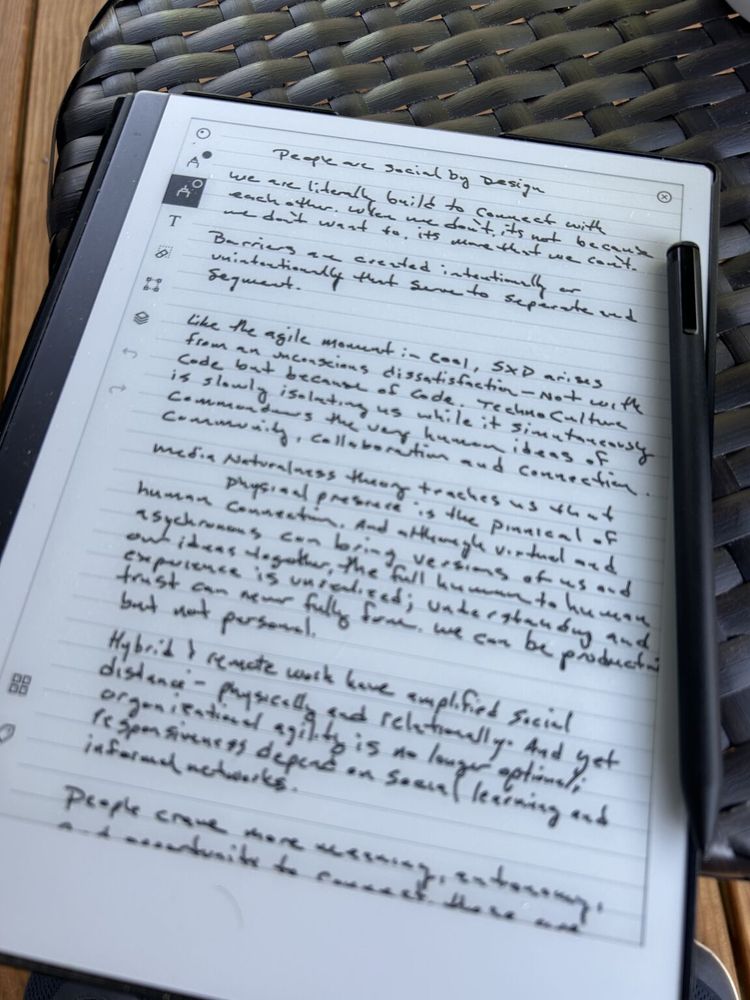 People are social by Design
we are literally build to connect with
each other. when we don't, its not because
we don't want to. its more that we can't.
Barriers are created intentionally or
unintentionally that serve to separate and
segment.
Like the agile moment in coal, SXD arises
from an unconscious dissatisfaction - Not with
Code but because of code. Techno Culture
is slowly isolating us while it simutaneously
commandeers the very human ideas of
Community, collaboration and connection.
media Naturalness theory teaches us that
physical presence is the pinnical of
human connection. And although virtual and
asychronous can bring versions of us and
our ideas together, the full human to human
experience is unrealized; understanding and
trust can never fully form. we can be productiv
but not personal.
Hybrid & remote work have amplified social
distance - physically and relationally. And yet
organizational agility is no longer optional;
responsiveness depend on social learning and
informal networks.
People crave more meaning, autonomy,
and opportunite to connect. these are
T